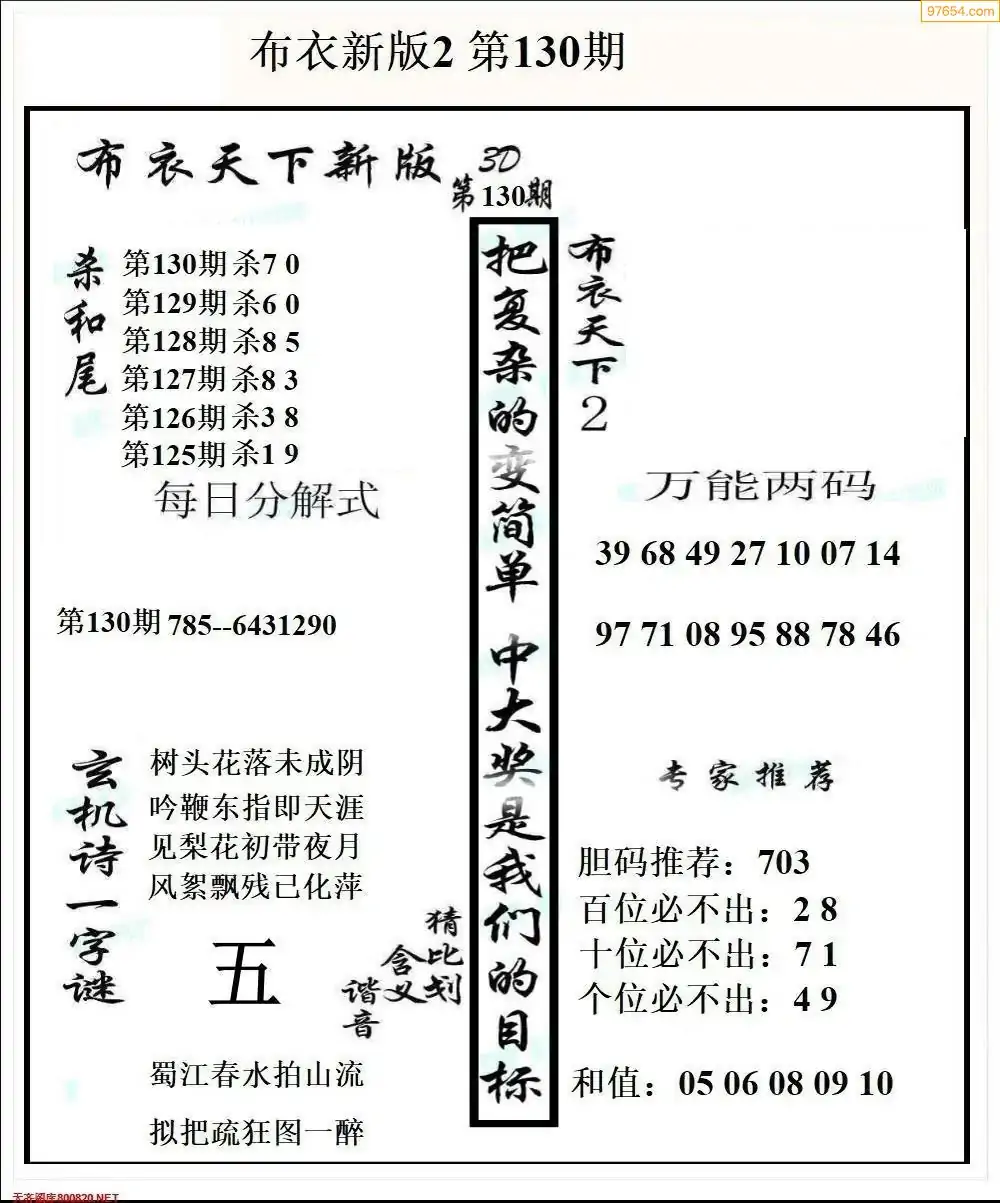 97654.com
布衣新版2 第130期
布衣天下新版
3D
第130期
杀和尾
第130期杀7 0
第129期杀6 0
第128期杀8 5
第127期杀8 3
第126期杀3 8
第125期杀1 9
每日分解式
第130期 785--6431290
玄机诗一字谜
树头花落未成阴
吟鞭东指即天涯
见梨花初带夜月
风絮飘残已化萍
五
猜比划
含义
谐音
蜀江春水拍山流
拟把疏狂图一醉
把复杂的变简单 中大奖是我们的目标
布衣天下2
万能两码
39 68 49 27 10 07 14
97 71 08 95 88 78 46
专家推荐
胆码推荐：703
百位必不出：2 8
十位必不出：7 1
个位必不出：4 9
和值：05 06 08 09 10
天齐图库800820.NET